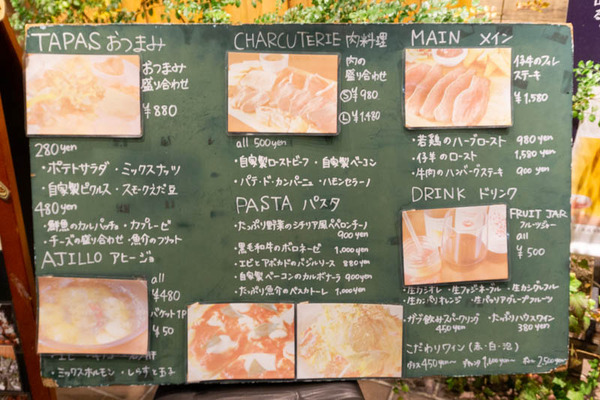 TAPAS おつまみ
おつまみ
盛り合わせ
¥880
280yen
・ポテトサラダ ・ミックスナッツ
・自家製ピクルス ・スモークえだ豆
480yen
・鮮魚のカルパッチョ ・カプレーゼ
・チーズの盛り合わせ ・魚介のフリット
AJILLO アヒージョ
all
¥480
バゲット1P
¥50
・ミックスホルモン ・しらすと
CHARCUTERIE 肉料理
肉の
盛り合わせ
Ⓢ¥980
Ⓛ¥1,480
all 500yen
・自家製ローストビーフ ・自家製ベーコン
・パテ・ド・カンパーニュ ・ハモンセラーノ
PASTA パスタ
・たっぷり野菜のシチリア風ペペロンチーノ
900yen
・黒毛和牛のボロネーゼ 1,000yen
・エビとアボカドのバジルソース 880yen
・自家製ベーコンのカルボナーラ 900yen
・たっぷり魚介のペスカトーレ 1,000yen
MAIN メイン
仔牛のフィレ
ステーキ
¥1,580
・若鶏のハーブロースト 980yen
・仔羊のロースト 1,580yen
・牛肉のハンバーグステーキ 900yen
DRINK ドリンク
FRUIT JAR
フルーツジャー
all
¥500
・生カシオレ ・生ファジーネーブル ・生カシグレフル
・生カンパリオレンジ ・生パッソアグレープフルーツ
・ガブ飲みスパークリング ・たっぷりハウスワイン
450yen 380yen
こだわりワイン (赤・白・泡)
グラス450yen〜 デキャンタ1,000yen〜 ボトル2,500yen〜